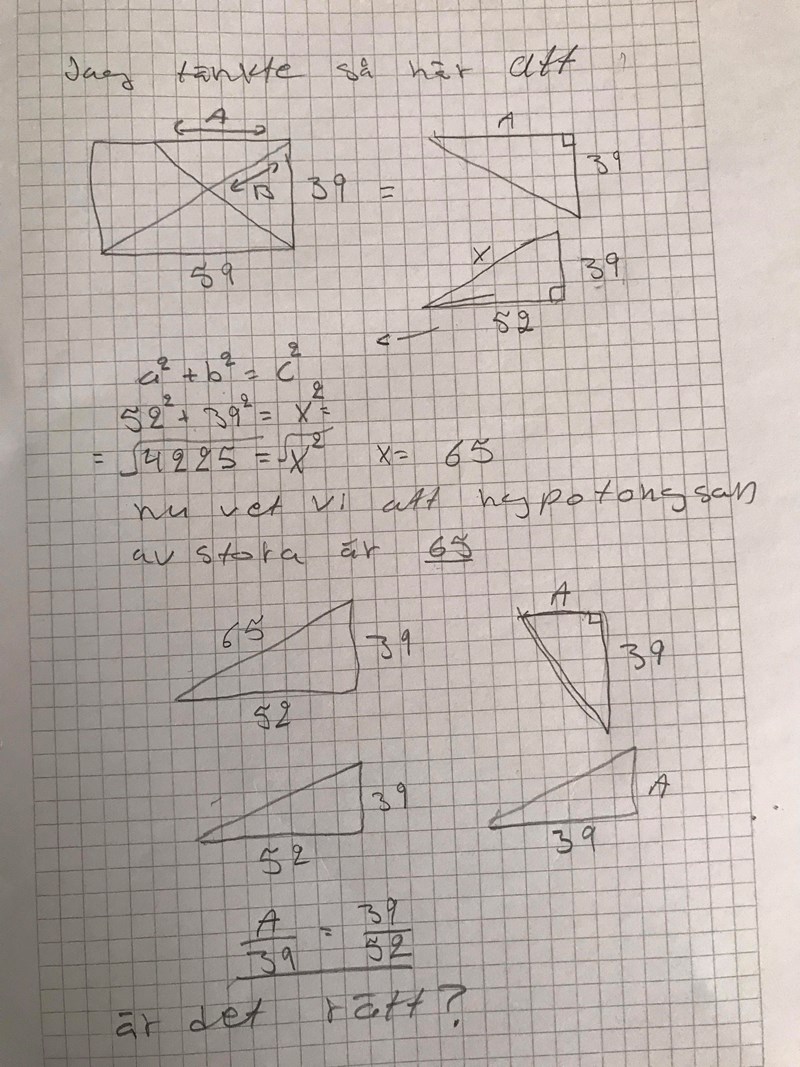 Jag tänkte så här att
A
A
B
39
=
39
59
x
39
52
a² + b² = c²
52² + 39² = x² =
= √4225 = √x² x = 65
nu vet vi att hypotongsan
av stora är 65
65
39
52
A
39
39
52
A
39
A/39 = 39/52
är det rätt?